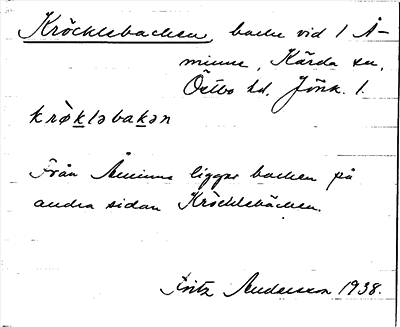 Kröcklebacken, backe vid 1 Å-
minne, Kärda sn,
Östbo hd. Jönk. l.
krö̀klәbakәn
Från Åminne ligger backen på
andra sidan Kröcklebäcken.
Fritz Andersson 1938.